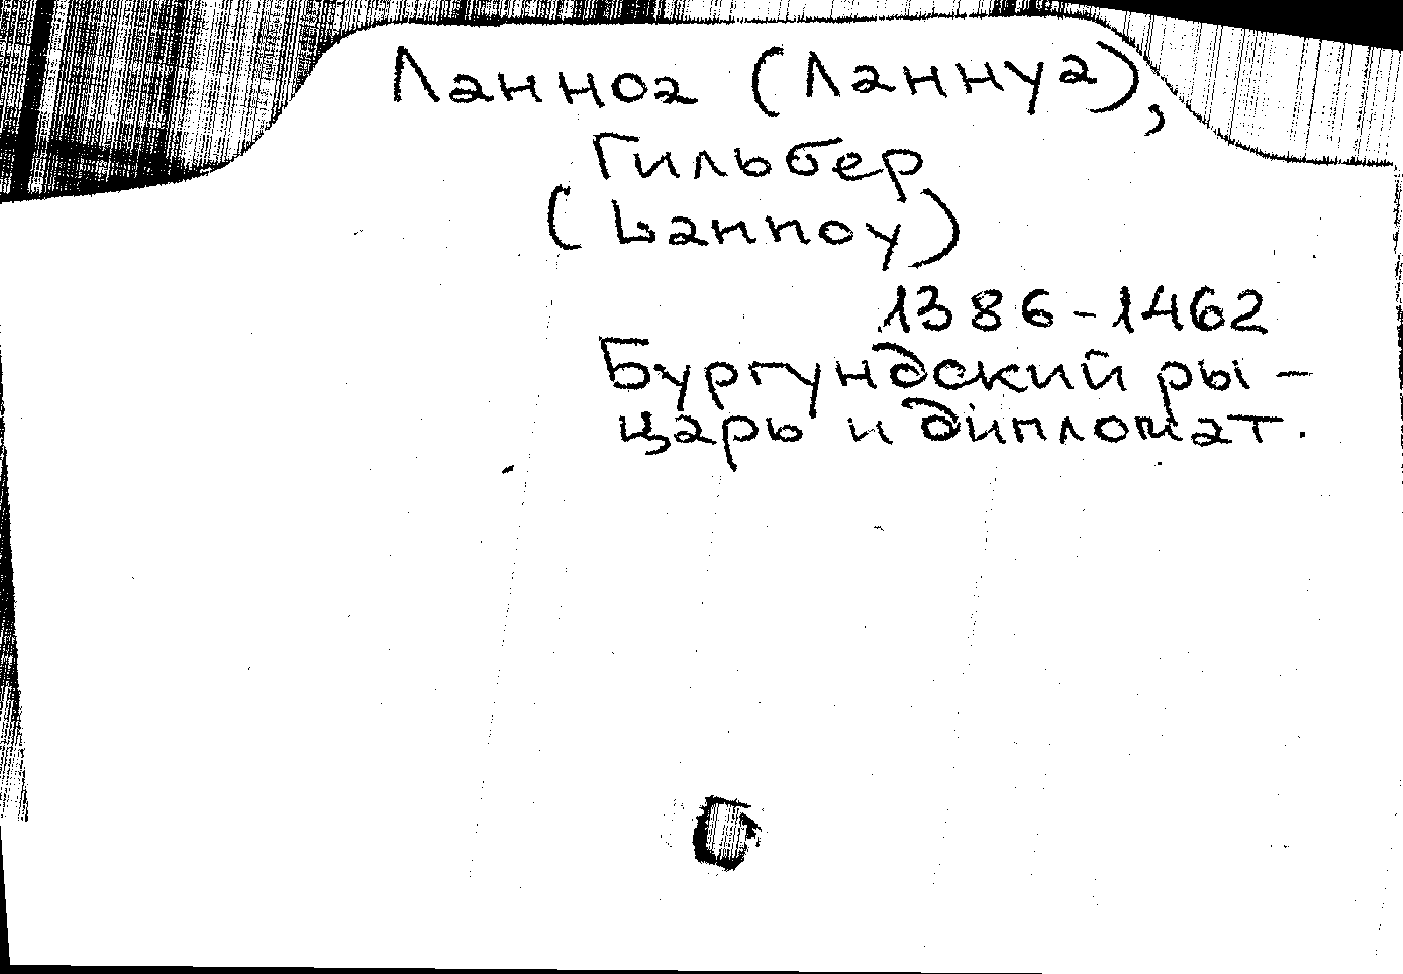 Ланноа (Ланнуа),
Гильбер
(Lannoy)
1386-1462
Бургундский ры-
царь и дипломат.